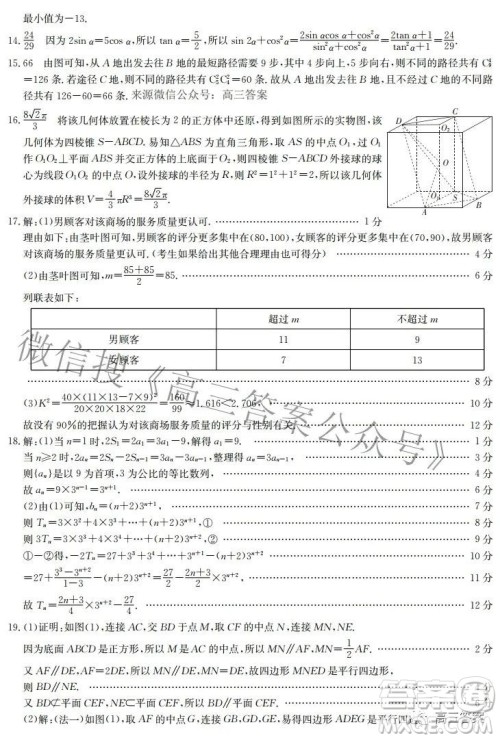 最小值为－13.
14. 24/29　因为 2sin α=5cos α,所以 tan α=5/2,所以 sin 2α+cos²α=(2sin αcos α+cos²α)/(sin²α+cos²α)=(2tan α+1)/(tan²α+1)=24/29.
15. 66　由图可知,从 A 地出发去往 B 地的最短路径需要 9 步,其中 4 步向上,5 步向右,则不同的路径共有 C₉⁴
=126 条.若途径 C 地,则不同的路径共有 C C =60 条.故从 A 地出发去往 B 地,且不经过 C 地的不同路
径共有 126－60=66 条. 来源微信公众号：高三答案
16. 8√2π/3　将该几何体放置在棱长为 2 的正方体中还原,得到如图所示的实物图,该
几何体为四棱锥 S－ABCD. 易知△ABS 为直角三角形,取 AS 的中点 O₁,过 O₁
作 O₁O₂⊥平面 ABS 并交正方体的上底面于 O₂,则四棱锥 S－ABCD 外接球的球
心为线段 O₁O₂ 的中点 O,设外接球的半径为 R,则 R²=1²+1²=2,所以该几何体
外接球的体积 V=4/3 πR³=8√2π/3.
D C O₂ O O₁ S A B
17. 解:(1)男顾客对该商场的服务质量更认可. …… 1 分
理由如下:由茎叶图可知,男顾客的评分更多集中在(80,100),女顾客的评分更多集中在(70,90),故男顾客
对该商场的服务质量更认可.(考生如果给出其他合理理由也可得分) …… 4 分
(2)由茎叶图可知,m=(85+85)/2=85. …… 6 分
列联表如下:
超过 m　不超过 m
男顾客　11　9
女顾客　7　13
…… 8 分
(3)K²=40×(11×13－7×9)²/(20×20×18×22)=160/99≈1.616<2.706, …… 10 分
故没有 90%的把握认为对该商场服务质量的评分与性别有关. …… 12 分
18. 解:(1)当 n=1 时,2S₁=2a₁=3a₁－9,解得 a₁=9. …… 1 分
当 n≥2 时,2aₙ=2Sₙ－2Sₙ₋₁=3aₙ－3aₙ₋₁,整理得 aₙ=3aₙ₋₁, …… 3 分
则{aₙ}是以 9 为首项,3 为公比的等比数列, …… 4 分
故 aₙ=9×3ⁿ⁻¹=3ⁿ⁺¹. …… 6 分
(2)由(1)可知,bₙ=(n+2)3ⁿ⁺¹, …… 7 分
则 Tₙ=3×3²+4×3³+…+(n+2)3ⁿ⁺¹,① …… 8 分
则 3Tₙ=3×3³+4×3⁴+…+(n+2)3ⁿ⁺²,② …… 9 分
①－②得,－2Tₙ=27+3³+3⁴+…+3ⁿ⁺¹－(n+2)3ⁿ⁺² …… 10 分
=27+(3³－3ⁿ⁺²)/(1－3)－(n+2)3ⁿ⁺²=27/2－(2n+3)/2×3ⁿ⁺², …… 11 分
故 Tₙ=(2n+3)/4×3ⁿ⁺²－27/4. …… 12 分
19. (1)证明:如图(1),连接 AC,交 BD 于点 M,取 CF 的中点 N,连接 MN,NE.
因为底面 ABCD 是正方形,所以 M 是 AC 的中点,所以 MN∥AF,MN=1/2 AF. …… 2 分
又 AF∥DE,AF=2DE,所以 MN∥DE,MN=DE,故四边形 MNED 是平行四边形,
则 BD∥NE. ……
又 BD⊄平面 CEF,NE⊂平面 CEF,所以 BD∥平面 CEF. ……
(2)解:(法一)如图(2),取 AF 的中点 G,连接 GB,GD,GE. 易得四边形 ADEG 是平行四边
微信搜《高三答案公众号》
高三答案